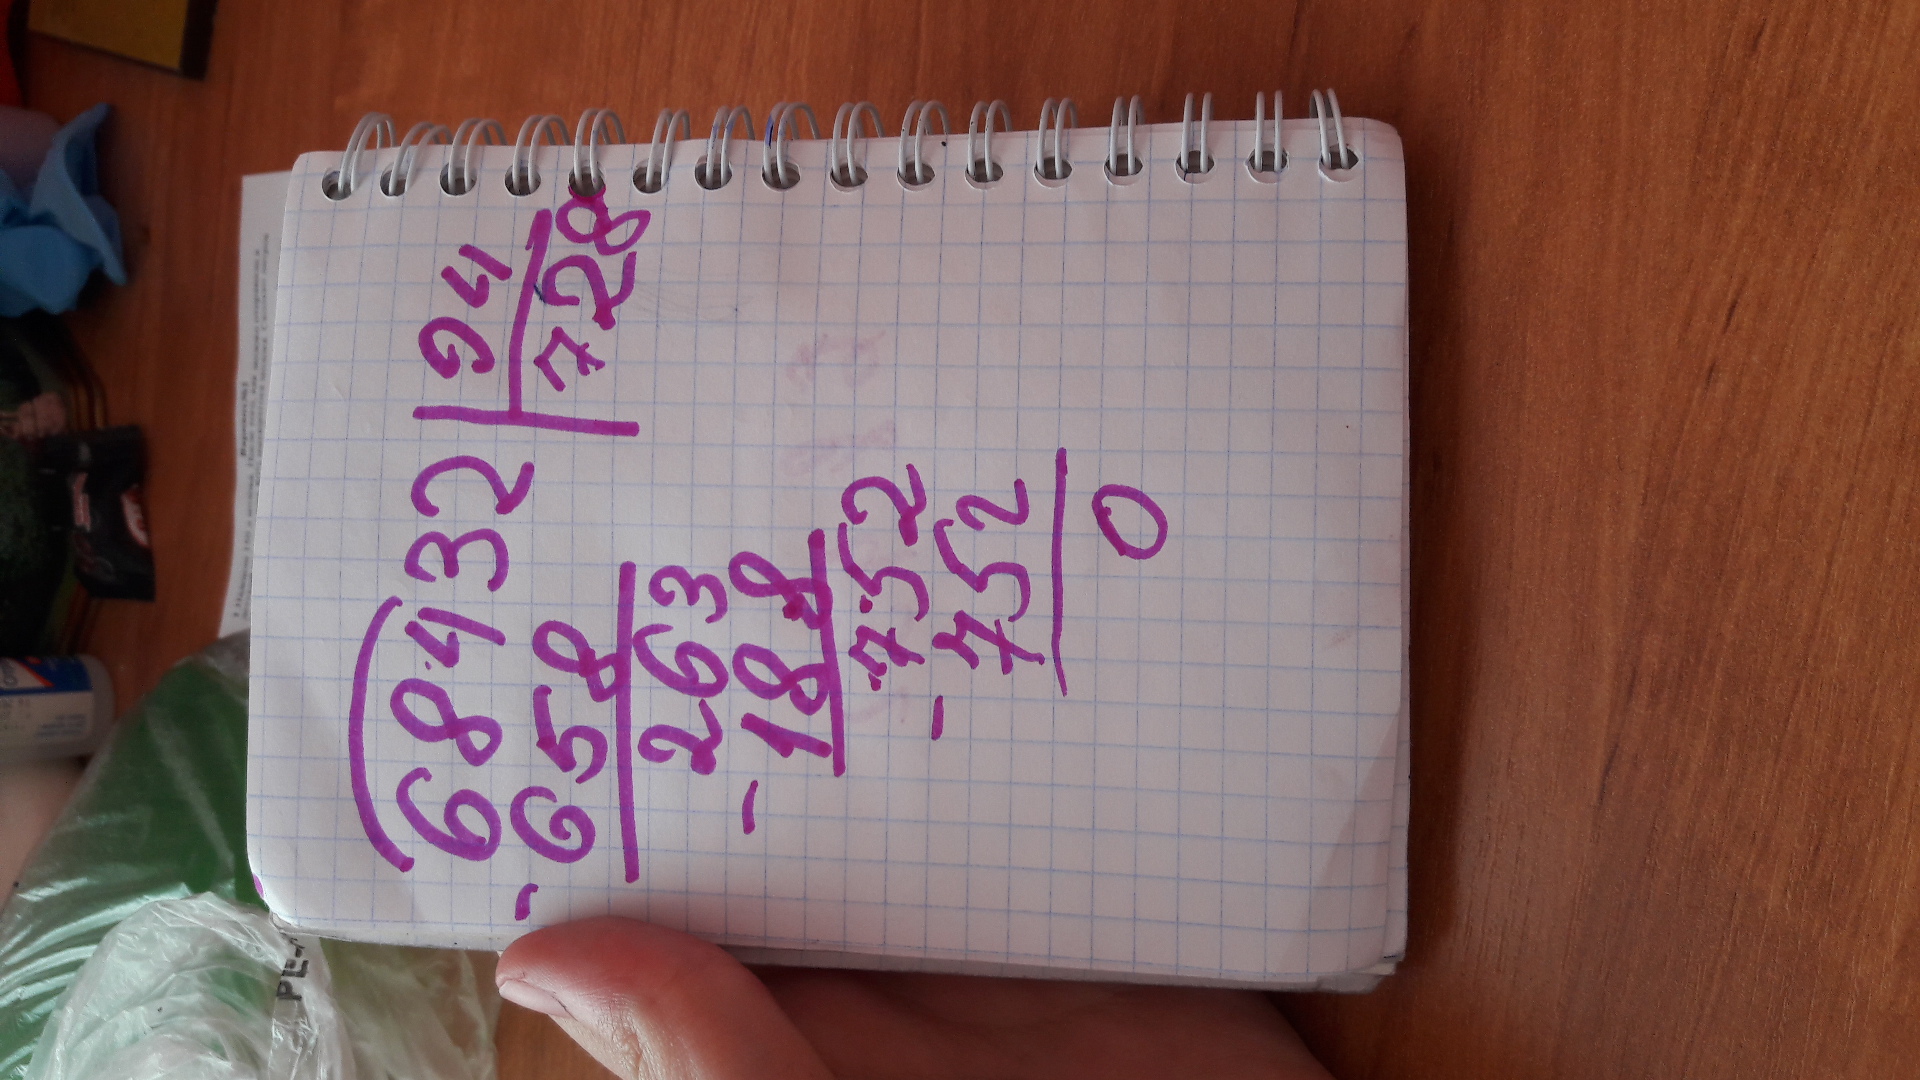 68432 94
- 658 728
263
- 188
752
- 752
0